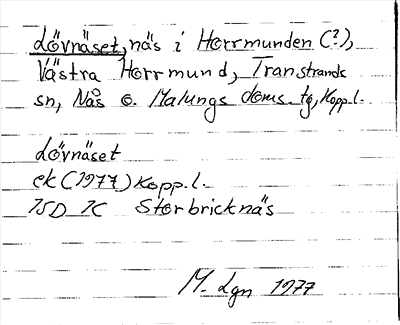 Lövnäset, näs i Horrmunden (?),
Västra Horrmund, Transtrands
sn, Nås o. Malungs doms. tg, Kopp.l.
Lövnäset
ek (1977) Kopp.l.
15D 1C Storbricknäs
M. Lgn 1977